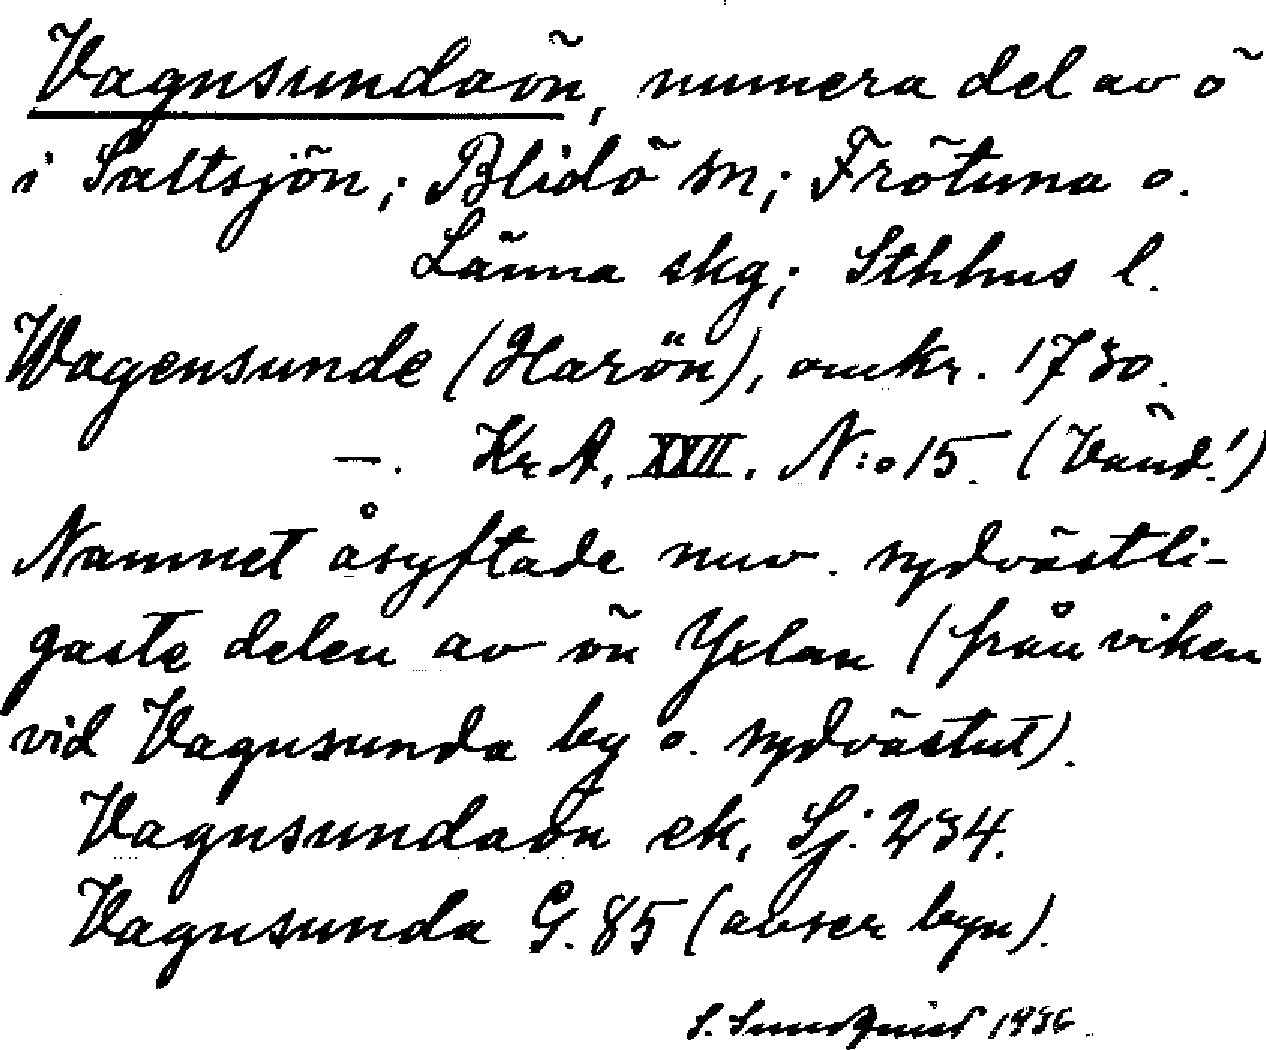 Vagnsundaön, numera del av ö
i Saltsjön; Blidö sn; Frötuna o.
Länna skg; Sthlms l.
Wagensunde (Harön), omkr. 1730.
—. Kr. A. XXII. N:o 15. (Vänd!)
Namnet åsyftade nuv. sydvästli-
gaste delen av ön Yxlan (från viken
vid Vagnsunda by o. sydvästut).
Vagnsundaön ek, Sj: 234.
Vagnsunda G. 85 (avser byn).
S. Sundquist 1936.